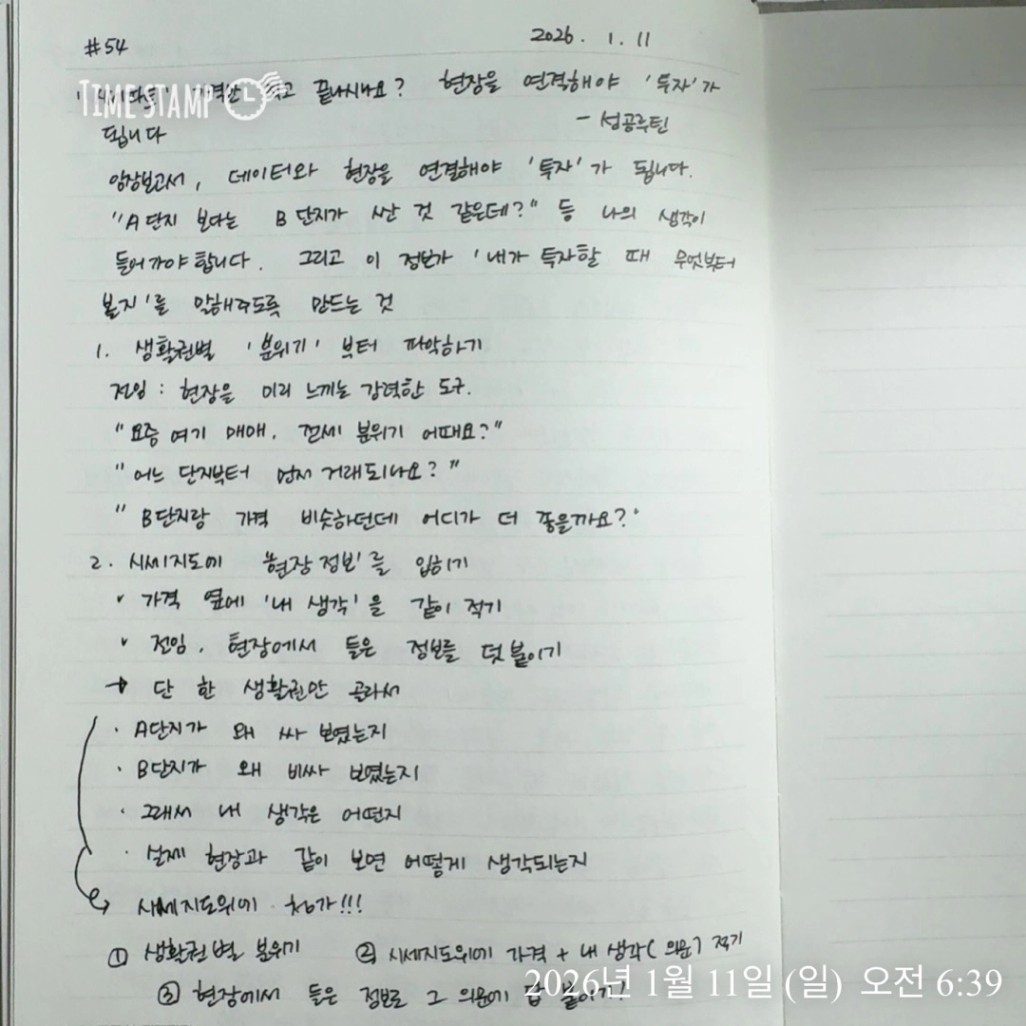 #54 2026. 1. 11
TIMESTAMP
끝나시나요? 현장을 연결해야 '투자'가
됩니다 - 성공루틴
임장보고서, 데이터와 현장을 연결해야 '투자'가 됩니다.
"A단지 보다는 B단지가 싼 것 같은데?" 등 나의 생각이
들어가야 합니다. 그리고 이 정보가 '내가 투자할 때 무엇부터
볼지'를 말해주도록 만드는 것
1. 생활권별 '분위기' 부터 파악하기
전임 : 현장을 미리 느끼는 강력한 도구.
"요즘 여기 매매, 전세 분위기 어때요?"
"어느 단지부터 먼저 거래되나요?"
"B단지랑 가격 비슷하던데 어디가 더 좋을까요?"
2. 시세지도에 '현장 정보'를 입히기
· 가격 옆에 '내 생각'을 같이 적기
· 전임, 현장에서 들은 정보를 덧붙이기
→ 단 한 생활권만 골라서
· A단지가 왜 싸 보였는지
· B단지가 왜 비싸 보였는지
· 그래서 내 생각은 어떤지
· 실제 현장과 같이 보면 어떻게 생각되는지
시세지도위에 추가!!!
① 생활권별 분위기 ② 시세지도위에 가격 + 내 생각(의문) 적기
③ 현장에서 들은 정보로 그 의문에 답 붙이기!
2026년 1월 11일 (일) 오전 6:39